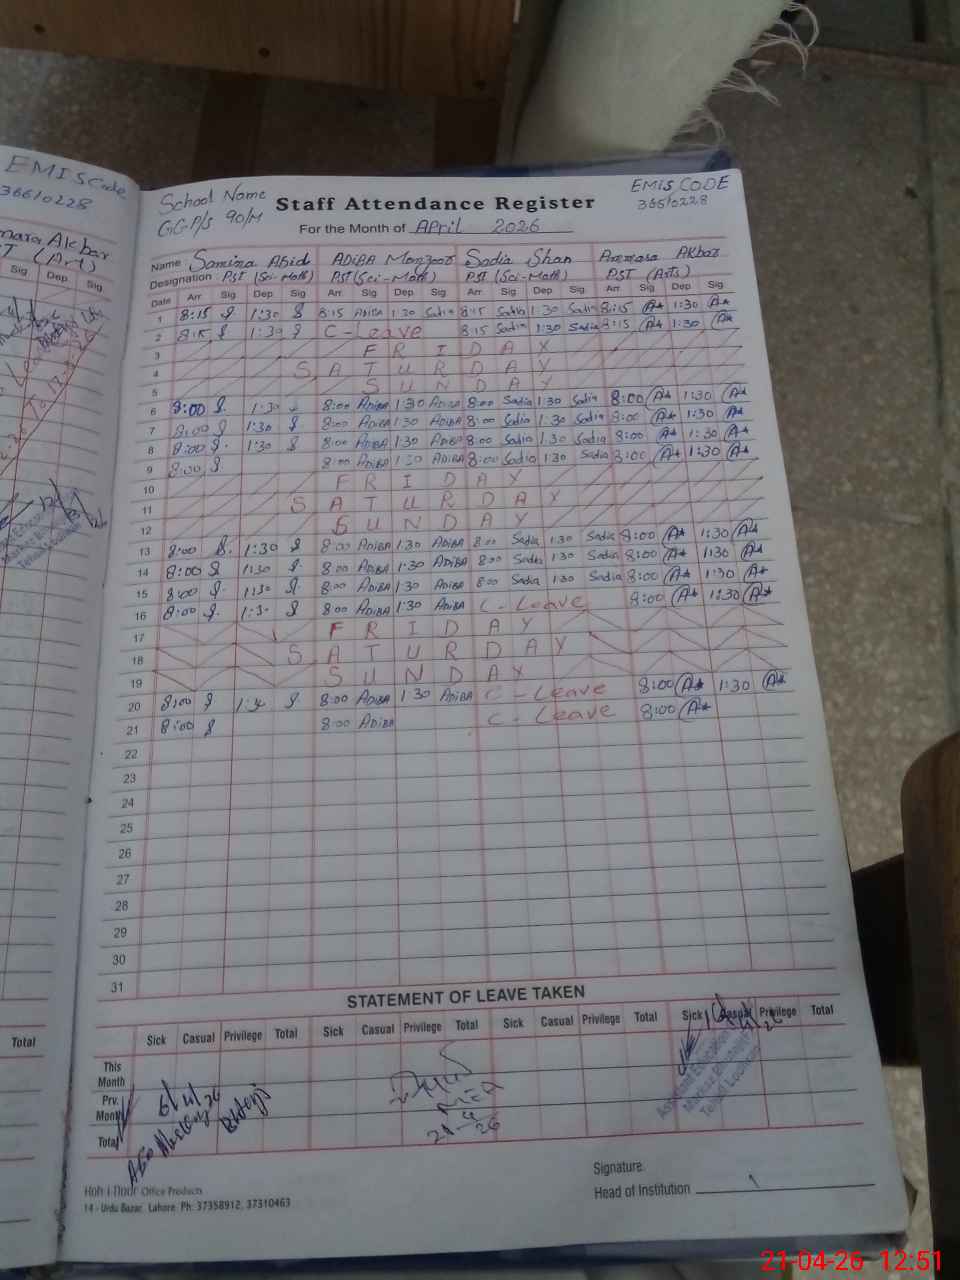 EMIS Code
36610228
Akbar
(Art)
Sig Dep Sig
Total
School Name
GGP/S 90/M
Staff Attendance Register
EMIS CODE
36610228
For the Month of APril 2026
Name Samina Abid ADIBA Manzoor Sadia Shan Ammara AKbar
Designation PST (Sci-Math) PST (Sci-Math) PST (Sci-Math) PST (Arts)
Date Arr Sig Dep Sig Arr Sig Dep Sig Arr Sig Dep Sig Arr Sig Dep Sig
1 8:15 1:30 8:15 ADIBA 1:30 8:15 Sadia 1:30 Sadia 8:15 1:30
2 8:15 1:30 C-Leave 8:15 Sadia 1:30 Sadia 8:15 1:30
3 FRIDAY
4 SATURDAY
5 SUNDAY
6 8:00 1:30 8:00 ADIBA 1:30 ADIBA 8:00 Sadia 1:30 Sadia 8:00 1:30
7 8:00 1:30 8:00 ADIBA 1:30 ADIBA 8:00 Sadia 1:30 Sadia 8:00 1:30
8 8:00 1:30 8:00 ADIBA 1:30 ADIBA 8:00 Sadia 1:30 Sadia 8:00 1:30
9 8:00 8:00 ADIBA 1:30 ADIBA 8:00 Sadia 1:30 Sadia 8:00 1:30
10 FRIDAY
11 SATURDAY
12 SUNDAY
13 8:00 1:30 8:00 ADIBA 1:30 ADIBA 8:00 Sadia 1:30 Sadia 8:00 1:30
14 8:00 1:30 8:00 ADIBA 1:30 ADIBA 8:00 Sadia 1:30 Sadia 8:00 1:30
15 8:00 1:30 8:00 ADIBA 1:30 ADIBA 8:00 Sadia 1:30 Sadia 8:00 1:30
16 8:00 1:30 8:00 ADIBA 1:30 ADIBA C-Leave 8:00 1:30
17 FRIDAY
18 SATURDAY
19 SUNDAY
20 8:00 1:30 8:00 ADIBA 1:30 ADIBA C-Leave 8:00 1:30
21 8:00 8:00 ADIBA C-Leave 8:00
22
23
24
25
26
27
28
29
30
31
STATEMENT OF LEAVE TAKEN
Sick Casual Privilege Total Sick Casual Privilege Total Sick Casual Privilege Total Sick Casual Privilege Total
This Month
Prv. Month
Total
6/4/26
AEO
21-4-26
Assistant Education
Markaz
Tehsil
Signature
Head of Institution
Office Products
14 - Urdu Bazar, Lahore. Ph: 37358912, 37310463
21-04-26 12:51